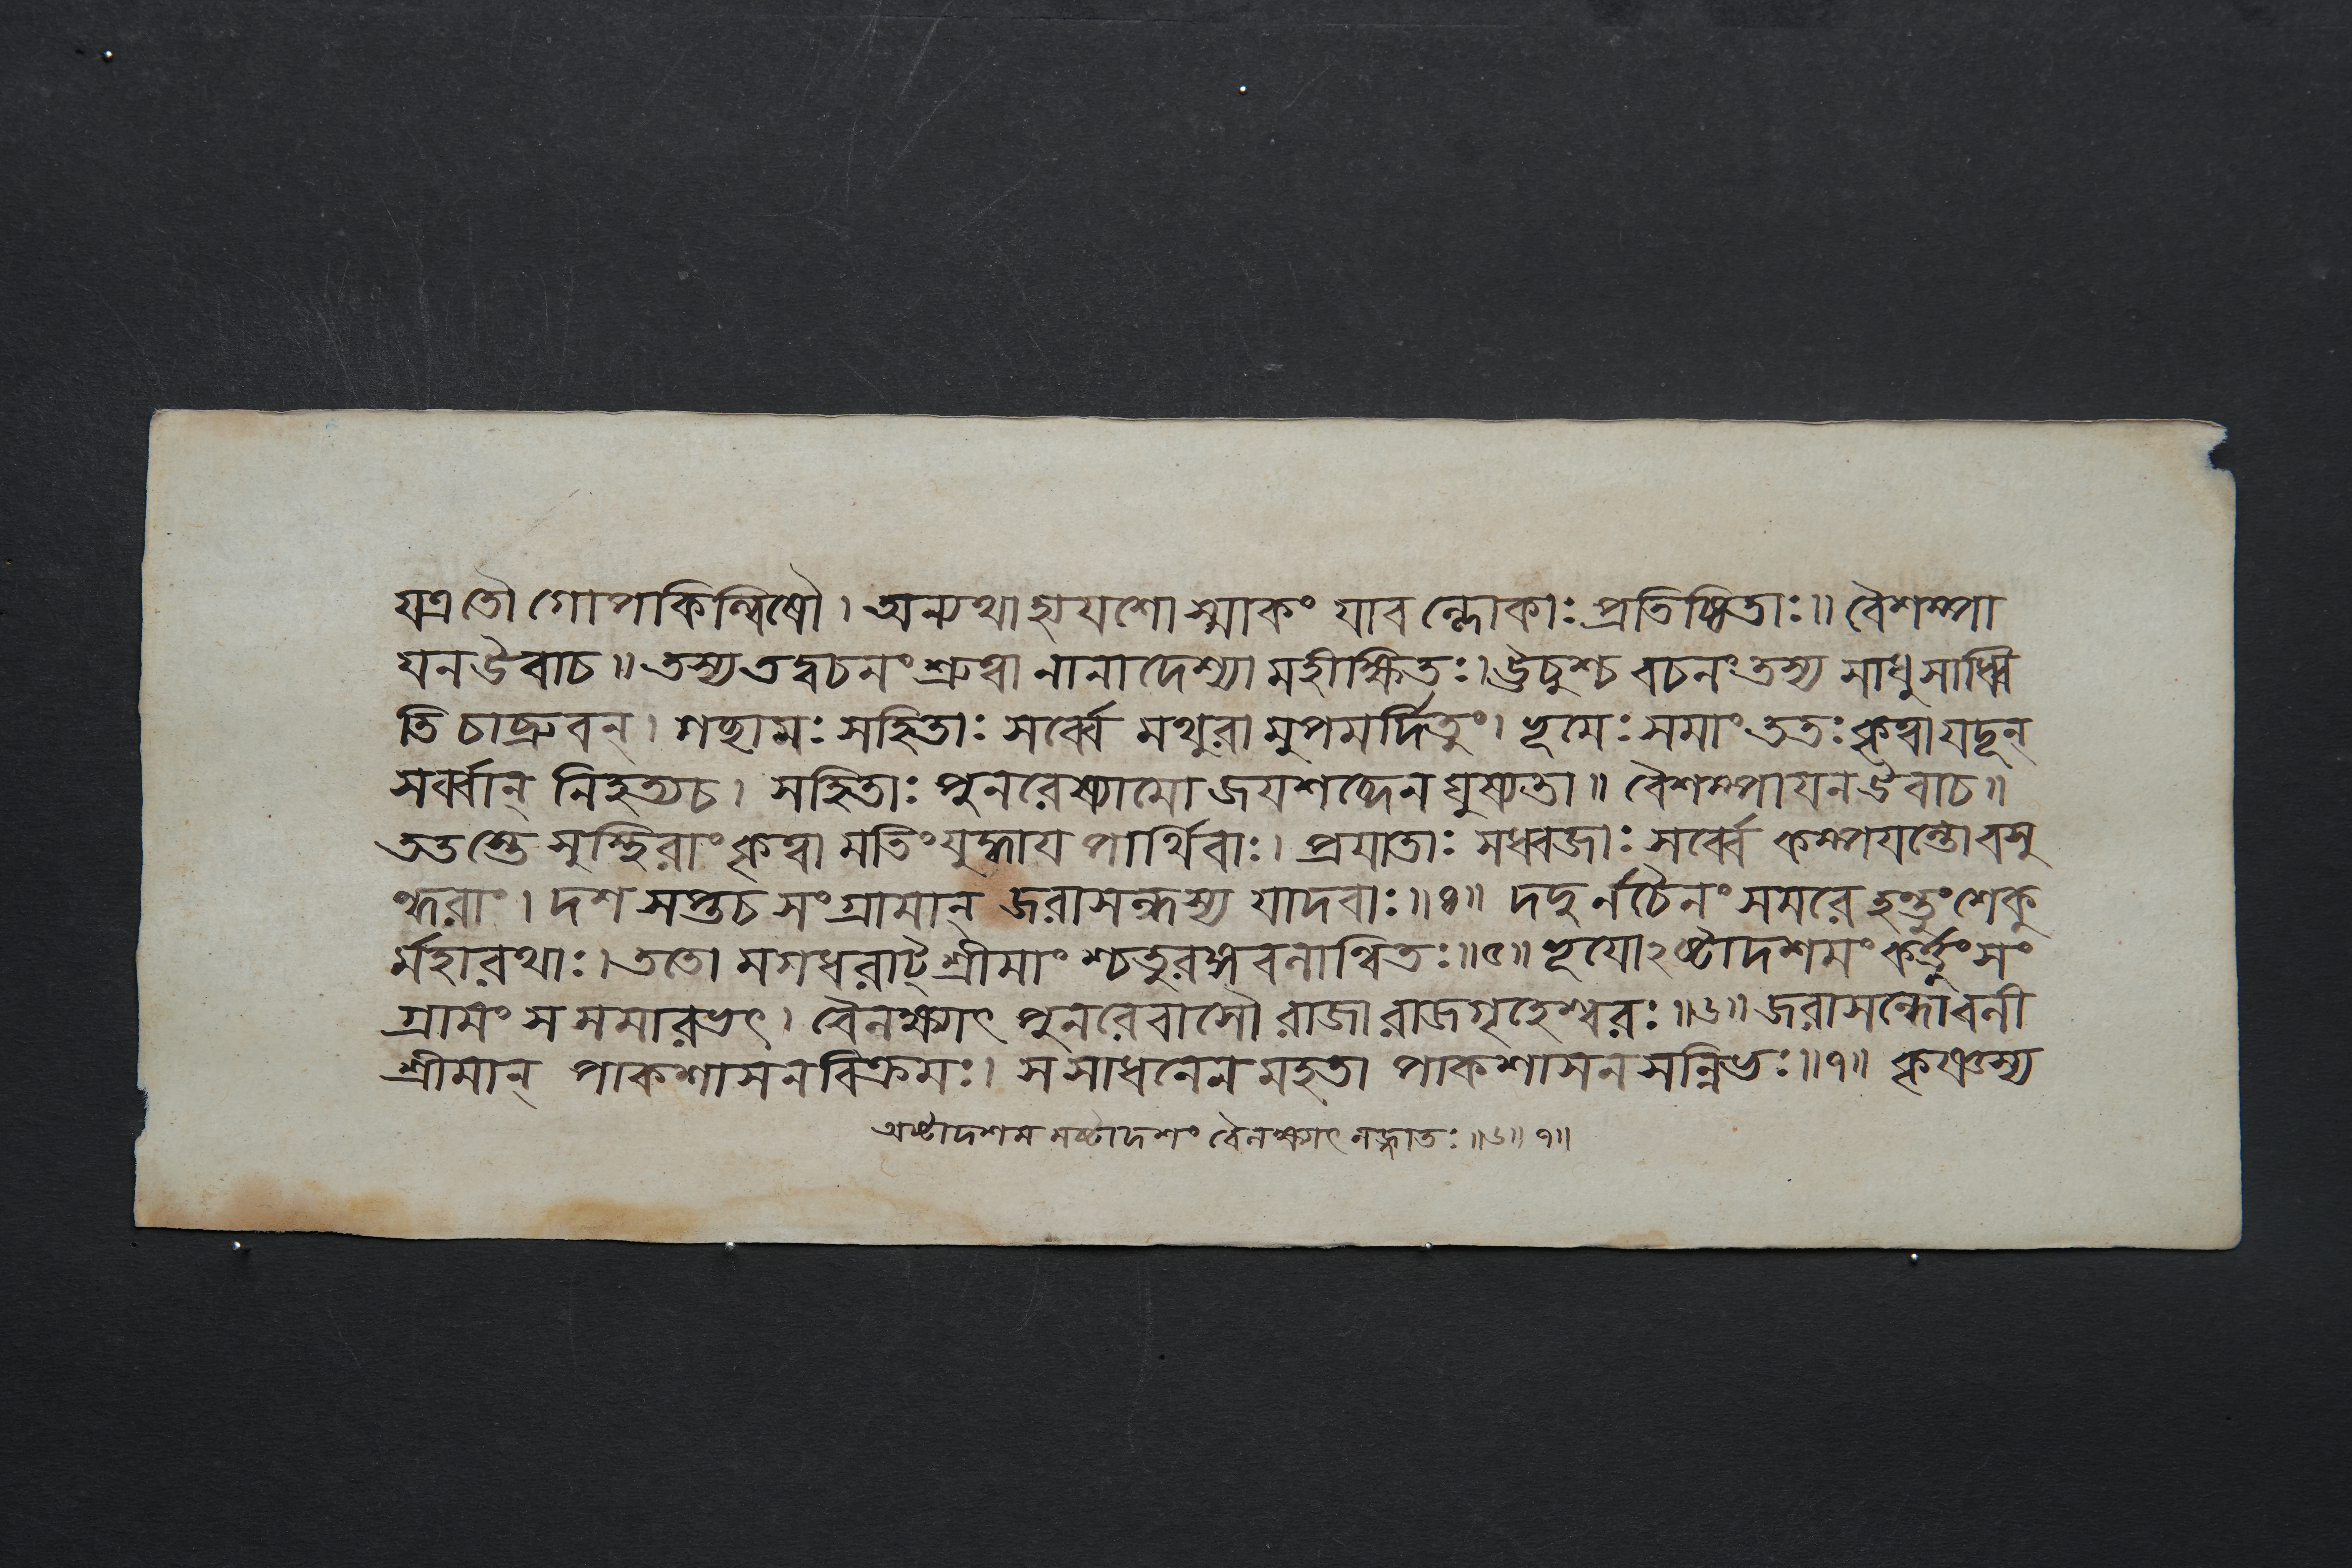 যত্র তৌ গোপকিল্বিষৌ। অন্যথা হ্যযশোস্মাকং যাবল্লোকাঃ প্রতিষ্ঠিতাঃ॥ বৈশম্পা
যন উবাচ॥ তস্য তদ্বচনং শ্রুত্বা নানাদেশ্যা মহীক্ষিতঃ। ঊচুশ্চ বচনং তস্য সাধু সাধ্বি
তি চাব্রুবন্। গচ্ছামঃ সহিতাঃ সর্ব্বে মথুরামুপমর্দিতুং। ভূমেঃ সমাং ততঃ কৃত্বা যদূন্
সর্ব্বান্ নিহত্য চ। সহিতাঃ পুনরেষ্যামো জযশব্দেন ঘুষ্যতা॥ বৈশম্পাযন উবাচ॥
ততস্তে সুস্থিরাং কৃত্বা মতিং যুদ্ধায পার্থিবাঃ। প্রযাতাঃ সধ্বজাঃ সর্ব্বে কম্পযন্তো বসু
ন্ধরাং। দশ সপ্ত চ সংগ্রামান্ জরাসন্ধস্য যাদবাঃ॥৪॥ দদুর্নচৈনং সমরে হন্তুং শেকু
র্মহারথাঃ। ততো মগধরাট্ শ্রীমাংশ্চতুরঙ্গবলান্বিতঃ॥৫॥ ভূযোঽষ্টাদশমং কর্ত্তুং সং
গ্রামং সমমারভৎ। বৈলক্ষ্যাৎ পুনরেবাসৌ রাজা রাজগৃহেশ্বরঃ॥৬॥ জরাসন্ধো বলী
শ্রীমান্ পাকশাসনবিক্রমঃ। স সাধনেন মহতা পাকশাসনসন্নিভঃ॥৭॥ কৃষ্ণস্য
অষ্টাদশমমষ্টাদশং বৈলক্ষ্যাৎ লজ্জাতঃ॥৬॥৭॥